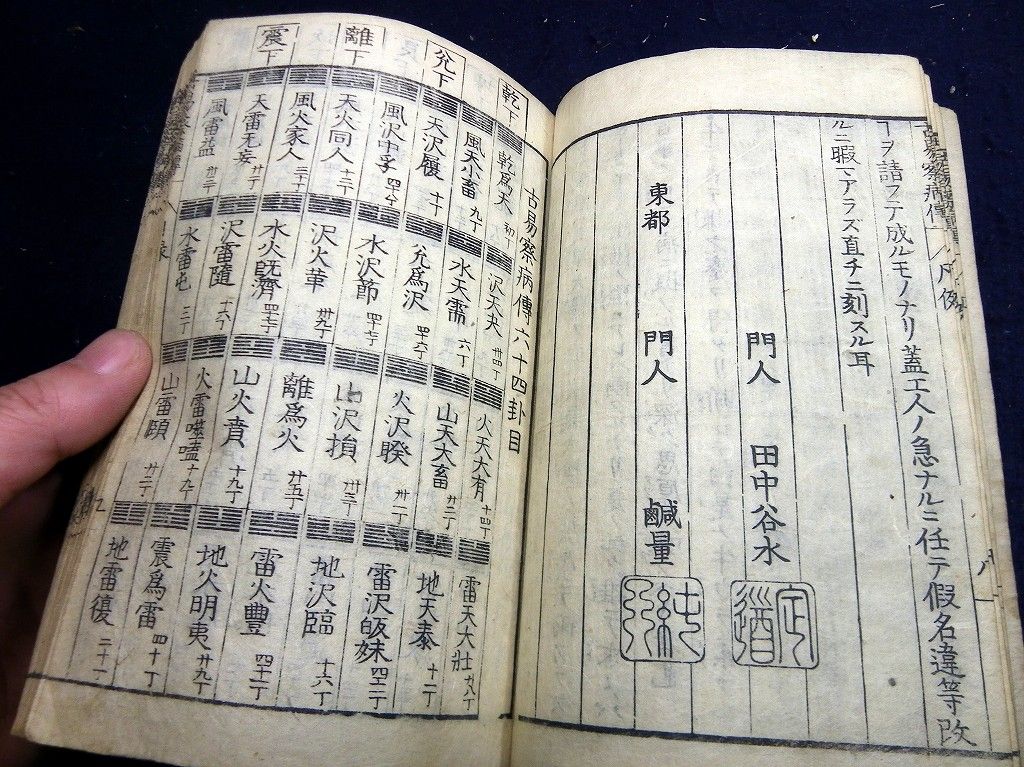 ヿヲ請フテ成ルモノナリ蓋工人ノ急ナルニ任テ假名違等改
ルニ暇マアラズ直チニ刻スル耳
門人 田中谷水
東都 門人 鹹量
古易察病傳 凡例
古易察病傳六十四卦目
乾下
乾爲天 初丁
沢天夬 卌四丁
火天大有 十四丁
雷天大壮 卅八丁
風天小畜 九丁
水天需 六丁
山天大畜 卄二丁
地天泰 十二丁
兊下
天沢履 十丁
兊爲沢
火沢睽 卅一丁
雷沢皈妹
風沢中孚
水沢節
山沢損 卅三丁
地沢臨 十六丁
離下
天火同人 十三丁
沢火革 卅九丁
離爲火 卄五丁
雷火豐 四十二丁
風火家人 三十丁
水火既濟
山火賁 十九丁
地火明夷 卄九丁
震下
天雷无妄 廿一丁
沢雷隨 十六丁
火雷噬嗑 十九丁
震爲雷 四十丁
風雷益
水雷屯 三丁
山雷頤 卄三丁
地雷復 二十一丁